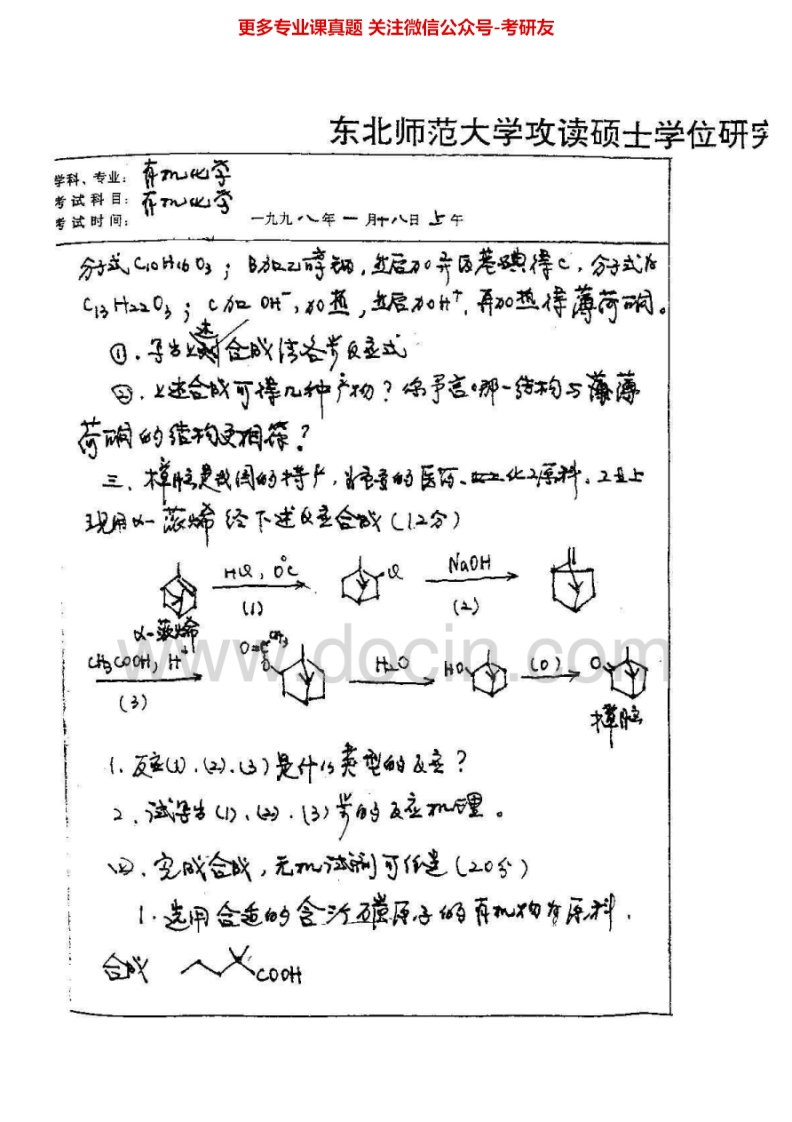 更多专业课真题 关注微信公众号-考研友
东北师范大学攻读硕士学位研究
学科、专业: 有机化学
考试科目: 有机化学
考试时间: 一九九八年一月十八日上午
分子式C10H16O3; B加乙醇钠,然后加异丙基碘得C,分子式为
C13H22O3; C加OH⁻,加热,然后加H⁺,再加热得薄荷酮。
①.写出上述合成法各步反应式
②.上述合成可得几种产物?你予言哪一结构与薄
荷酮的结构更相符?
三、樟脑是我国的特产,为重要的医药、化工原料。工业上
现用α-蒎烯经下述反应合成(12分)
HCl, 0℃ Cl NaOH
(1) (2)
α-蒎烯
www.docin.com
CH3COOH, H⁺ O=C CH3 O H2O HO (O) O
(3)
樟脑
1.反应(1).(2).(3)是什么类型的反应?
2.试写出(1).(2).(3)步的反应机理。
四、完成合成,无机试剂可任选(20分)
1.选用合适的含 碳原子的有机物为原料,
合成 COOH